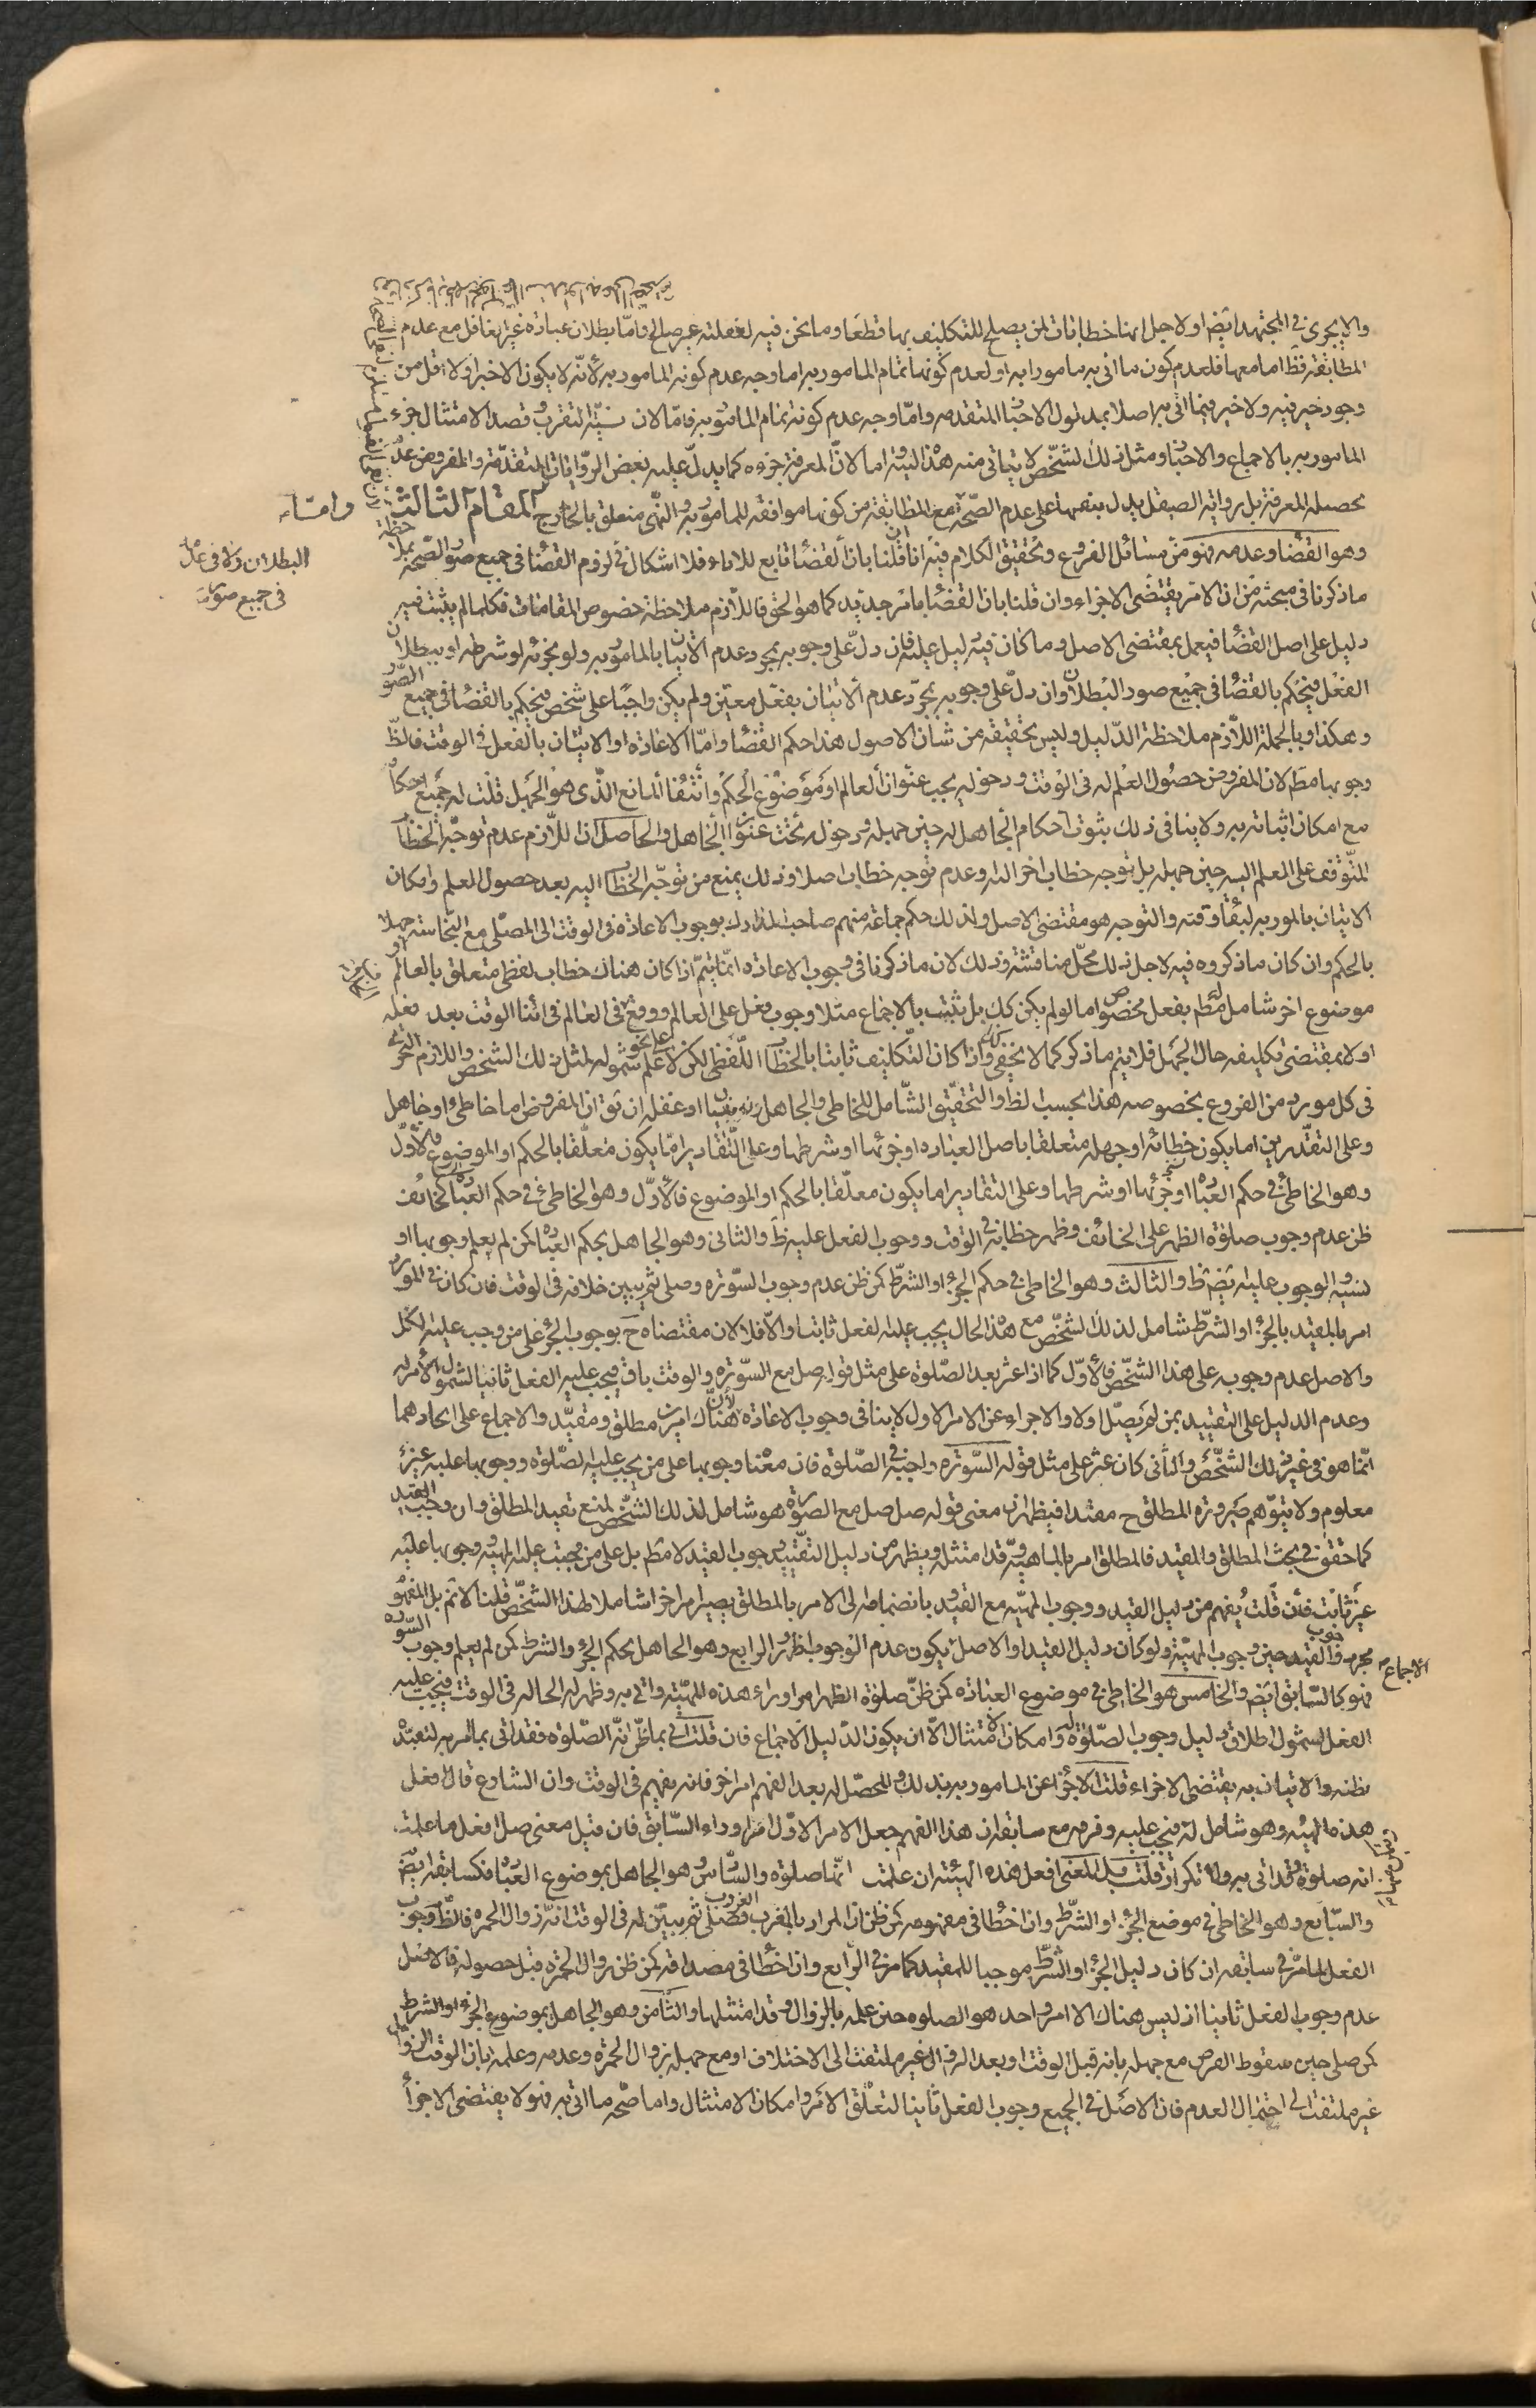 والا يجرى فى المجتهد ايض اولا جل انهنا خطابات لمن يصلح للتكليف بها قطعا وما نحن فيه لغفلته غير صالح واما بطلان عبادة غير الغافل مع عدم
المطابقة فظ اما معها فلعدم كون ما اتى به مامورا به اولعدم كونها تمام المامور به اما وجه عدم كونه المامور به لانه لا يكون الا خيرا ولا اقل من
وجود خير فيه ولا خير فيما اتى به اصلا بمدلول الاخبار المتقدمه واما وجه عدم كونه تمام المامور به فامّا لان نيّة التقرب وقصد الامتثال جزء
المامور به بالاجماع والاخبار ومثل ذلك الشخص لا يتاتى منه هذا النية اما لانّ المعرفة جزوه كما يدلّ عليه بعض الروايات المتقدّمة والمفروض عدم
تحصيله المعرفة بل رواية الصيقل يدل بنفيها على عدم الصّحة مع المطابقة من كونها موافقه للمامور به والنهى متعلق بالخارج المقام الثالث وامّا
وهو القضا وعدمه فهو من مسائل الفروع وتحقيق الكلام فيه انا ان قلنا بان القضا تابع للاداء فلا اشكال فى لزوم القضا فى جميع صور الصّحة بملاحظة
البطلان ولا فى عدمه
فى جميع صور
ما ذكرنا فى مبحثه من ان الامر يقتضى الاجزاء وان قلنا بان القضا بامر جديد كما هو الحق فاللازم ملاحظة خصوص المقامات فكلما لم يثبت فيه
دليل على اصل القضا فيعمل بمقتضى الاصل وما كان فيه دليل عليه فان دلّ على وجوبه بمجرد عدم الاتيان بالمامور به ولو بجزئه لو شرطه او ببطلان
الفعل فيحكم بالقضا فى جميع صور البطلان وان دلّ على وجوبه بمجرّد عدم الاتيان بفعل معين ولم يكن واجبا على شخص فيحكم بالقضا فى جميع الصور
وهكذا وبالجملة اللازم ملاحظة الدّليل وليس تحقيقه من شان الاصول هذا حكم القضا وامّا الاعادة او الاتيان بالفعل فى الوقت فالظّ
وجوبها مط لان المفروض حصول العلم له فى الوقت ودخوله يجب عنوان العالم او موضوع الحكم وانتفا المانع الذى هو الجهل قلت له جميع احكام
مع امكان اثباته به ولا ينافى ذلك بثبوت احكام الجاهل له حين جهله ودخوله تحت عنوان الجاهل والحاصل ان اللازم عدم توجّه الخطاب
المتوقف على العلم اليه حين جهله بل توجه خطاب اخر اليه وعدم توجه خطاب اصلا وذلك يمنع من توجّه الخطاب اليه بعد حصول العلم وامكان
الاتيان بالمور به لبقا وقته والتوجه هو مقتضى الاصل ولذلك حكم جماعة منهم صاحب المدارك بوجوب الاعادة فى الوقت الى المصلى مع النجاسة جهلا
بالحكم وان كان ما ذكروه فيه لاجل ذلك محلّ مناقشة وذلك لان ما ذكرنا فى وجوب الاعادة انما يتمّ اذا كان هناك خطاب لفظى متعلق بالعالم او
موضوع اخر شامل له مط بفعل مخصوص اما لو لم يكن كك بل يثبت بالاجماع مثلا وجوب فعل على العالم ووقع فى العالم فى اثنا الوقت بعد فعله
اولا بمقتضى تكليفه حال الجهل فلا يتم ما ذكر كما لا يخفى وكذا اذا كان التكليف ثابتا بالخطاب اللفظى لكن لا على نحو علم شموله لمثل ذلك الشخص واللازم التحرّى
فى كل مورد من الفروع بخصوصه هذا بحسب الظ والتحقيق الشّامل للخاطى والجاهل او غفله ان تق ان المفروض اما خاطى او جاهل
وعلى التقدّيرين اما يكون خطائه او جهله متعلقا باصل العباده او جزئها او شرطها وعلى التّقادير امّا يكون متعلّقا بالحكم او الموضوع فالاوّل
وهو الخاطى فى حكم العباده او جزئها او شرطها وعلى التقادير اما يكون معلّقا بالحكم او الموضوع فالاوّل وهو الخاطى فى حكم العباده كالخائف
ظن عدم وجوب صلوة الظهر على الخائف وظهر خطائه فى الوقت ووجوب الفعل عليه ظ والثانى وهو الجاهل بحكم العباده كمن لم يعلم وجوبها او
نسيه الوجوب عليه ايض ظ والثالث وهو الخاطى فى حكم الجزء او الشرط كمن ظن عدم وجوب السّورة وصلى ثم تبين خلافه فى الوقت فان كان فى المورد
امر بالمقيد بالجزء او الشرط شامل لذلك الشخص مع هذا الحال يجب عليه الفعل ثابتا والّا فلا لان مقتضاه ح بوجوب الجزء على من وجب عليه الكل
والاصل عدم وجوبه على هذا الشخص فالاول كما اذا عثر بعد الصّلوة على مثل قوله صل مع السّورة والوقت باق فيجب عليه الفعل ثانيا لشمول الامر له
وعدم الدليل على التقييد بمن لم يصلّ اولا والاجزاء عن الامر الاول لا ينافى وجوب الاعادة لان هناك امرين مطلق ومقيّد والاجماع على اتحادهما
انّما هو فى غير ذلك الشّخص والثانى كان عثر على مثل قوله السّورة واجبة فى الصّلوة فان معنا وجوبها على من يجب عليه الصّلوة ووجوبها عليه غير
معلوم ولا يتوّهم صيرورة المطلق ح مقيدا فيظهر ان معنى قوله صل صل مع السّورة هو شامل لذلك الشّخص لمنع تقييد المطلق وان وجب المقيد
كما حقق فى بحث المطلق والمقيد فالمطلق امر بالماهيّة وقد امتثل ويظهر من دليل التقييد وجوب القيد لا مط بل على من يجب عليه المهيّة ووجوبها عليه
غير ثابت فان قلت يفهم من دليل القيد ووجوب المهيّة مع القيد وبانضمامه الى الامر بالمطلق يصير امرا اخر شاملا لهذا الشخص قلنا لا نم بل المفهوم
مجرد وجوب القيد حين وجوب المهيّة ولو كان دليل القيد الاجماع والاصل يكون عدم الوجوب اظهر والرابع وهو الجاهل بحكم الجزء والشرط كمن لم يعلم وجوب السّورة
فهو كالسّابق ايض والخامس هو الخاطى فى موضوع العبادة كمن ظنّ صلوة الظهر امرا وراء هذه المهيّة واتى به وظهر له الحال فى الوقت فيجب عليه
الفعل لشمول اطلاق دليل وجوب الصّلوة له وامكان الامتثال الّا ان يكون الدّليل الاجماع فان قلت اتى بما ظنّ انّه الصّلوة فقد اتى بما امر به لتعبّده
بظنه والاتيان به يقتضى الاجزاء قلت الاجزاء عن المامور به بذلك والمحصّل له بعد الفهم امر اخر فانه يفهم فى الوقت وان الشارع قال افعل
هذه المهيّة وهو شامل له فيجب عليه وفرقه مع سابقه ان هذا الفهم جعل الامر الاوّل امرا وراء السّابق فان قيل معنى صل افعل ما علمت
انه صلوة وقد اتى به ولا تكرار قلت بل المعنى افعل هذه الهيئة ان علمت انّها صلوة والسّادس هو الجاهل بموضوع العباده فكسابقه ايض
والسّابع وهو الخاطى فى موضع الجزء او الشّرط وان اخطا فى مفهومه كمن ظن ان المراد بالمغرب الغروب فصلى ثم تبيّن له فى الوقت انّه زوال الحمرة فالظّ وجوب
الفعل لما مرّ فى سابقه ان كان دليل الجزء او الشّرط موجبا للمقيد كما مر فى الرّابع وان اخطا فى مصداقه كمن ظن زوال الحمرة قبل حصوله فالاصل
عدم وجوب الفعل ثانيا اذ ليس هناك الا امر واحد هو الصلوه حين علمه بالزوال وقد امتثلها والثّامن وهو الجاهل بموضوع الجزء او الشرط
كمن صلى حين سقوط القرص مع جهله بانه قبل الوقت او بعد الزوال غير ملتفت الى الاختلاف او مع جهله بزوال الحمرة وعدمه وعلمه بان الوقت الزوال
غير ملتفت الى احتمال العدم فان الاصل فى الجميع وجوب الفعل ثانيا لتعلّق الامر وامكان الامتثال واما صحّه ما اتى به فهو لا يقتضى الاجزاء